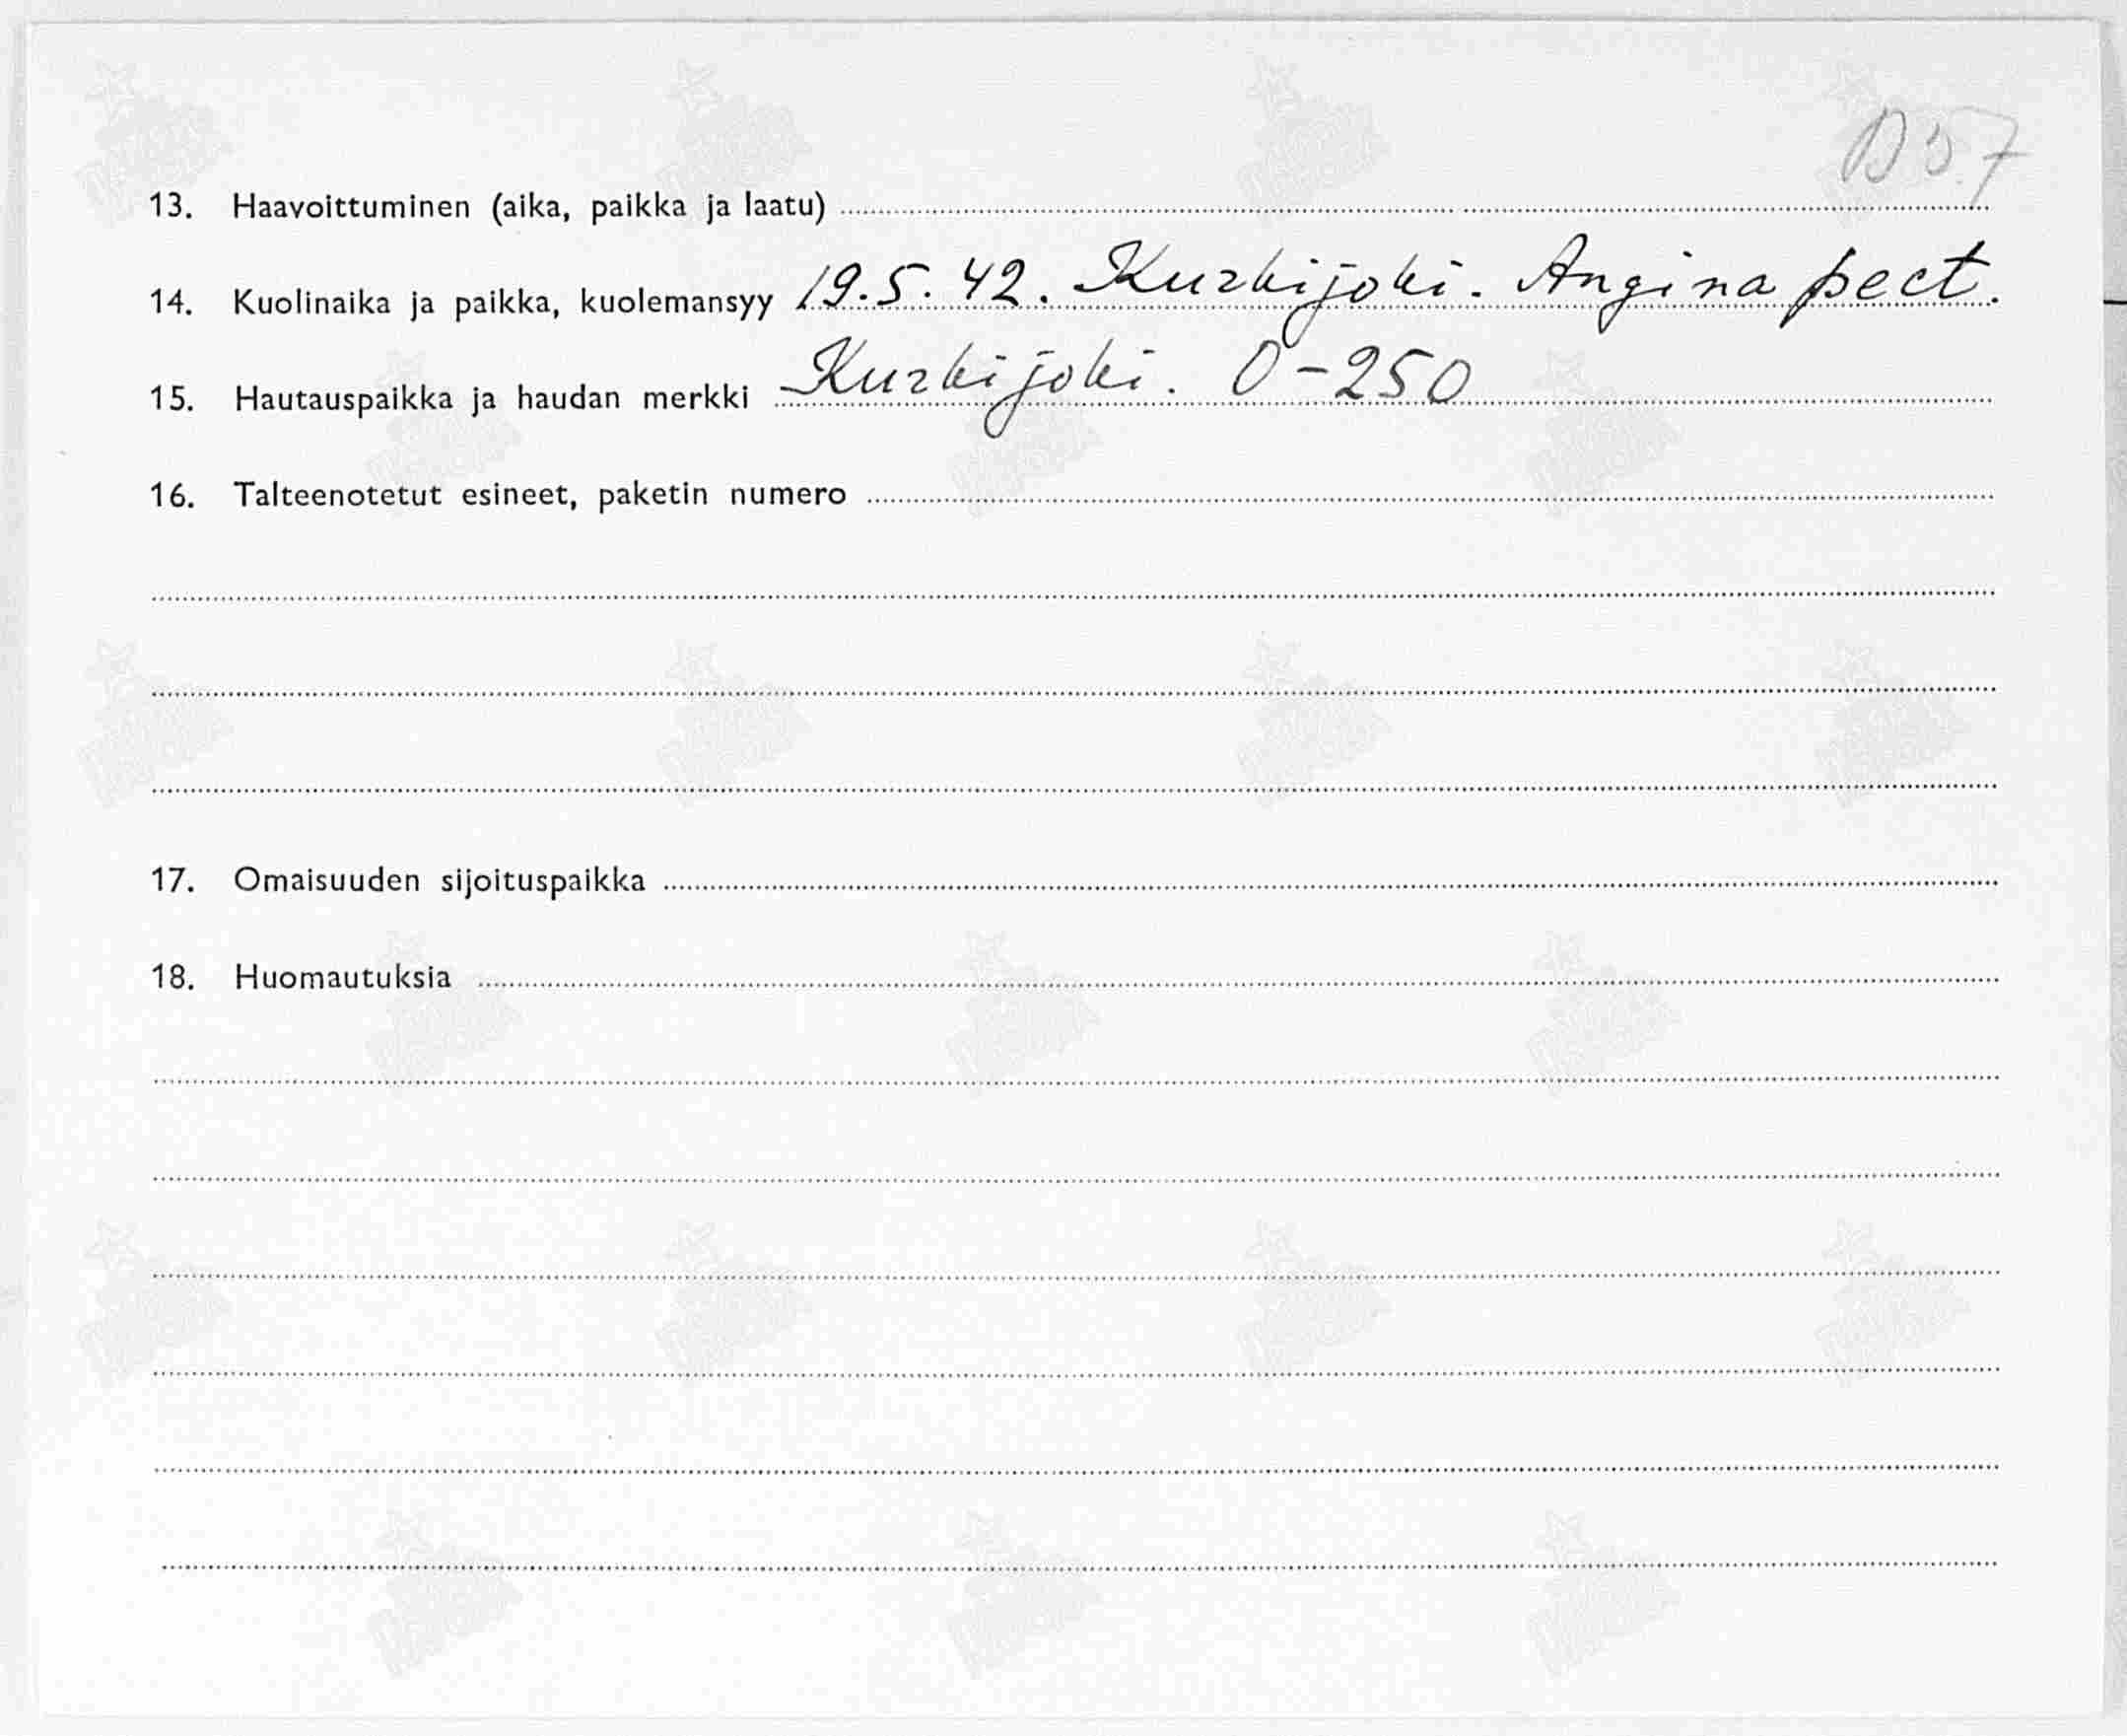 13. Haavoittuminen (aika, paikka ja laatu)
14. Kuolinaika ja paikka, kuolemansyy 19.5.42. Kurkijoki. Angina pect.
15. Hautauspaikka ja haudan merkki Kurkijoki. O-250
16. Talteenotetut esineet, paketin numero
17. Omaisuuden sijoituspaikka
18. Huomautuksia